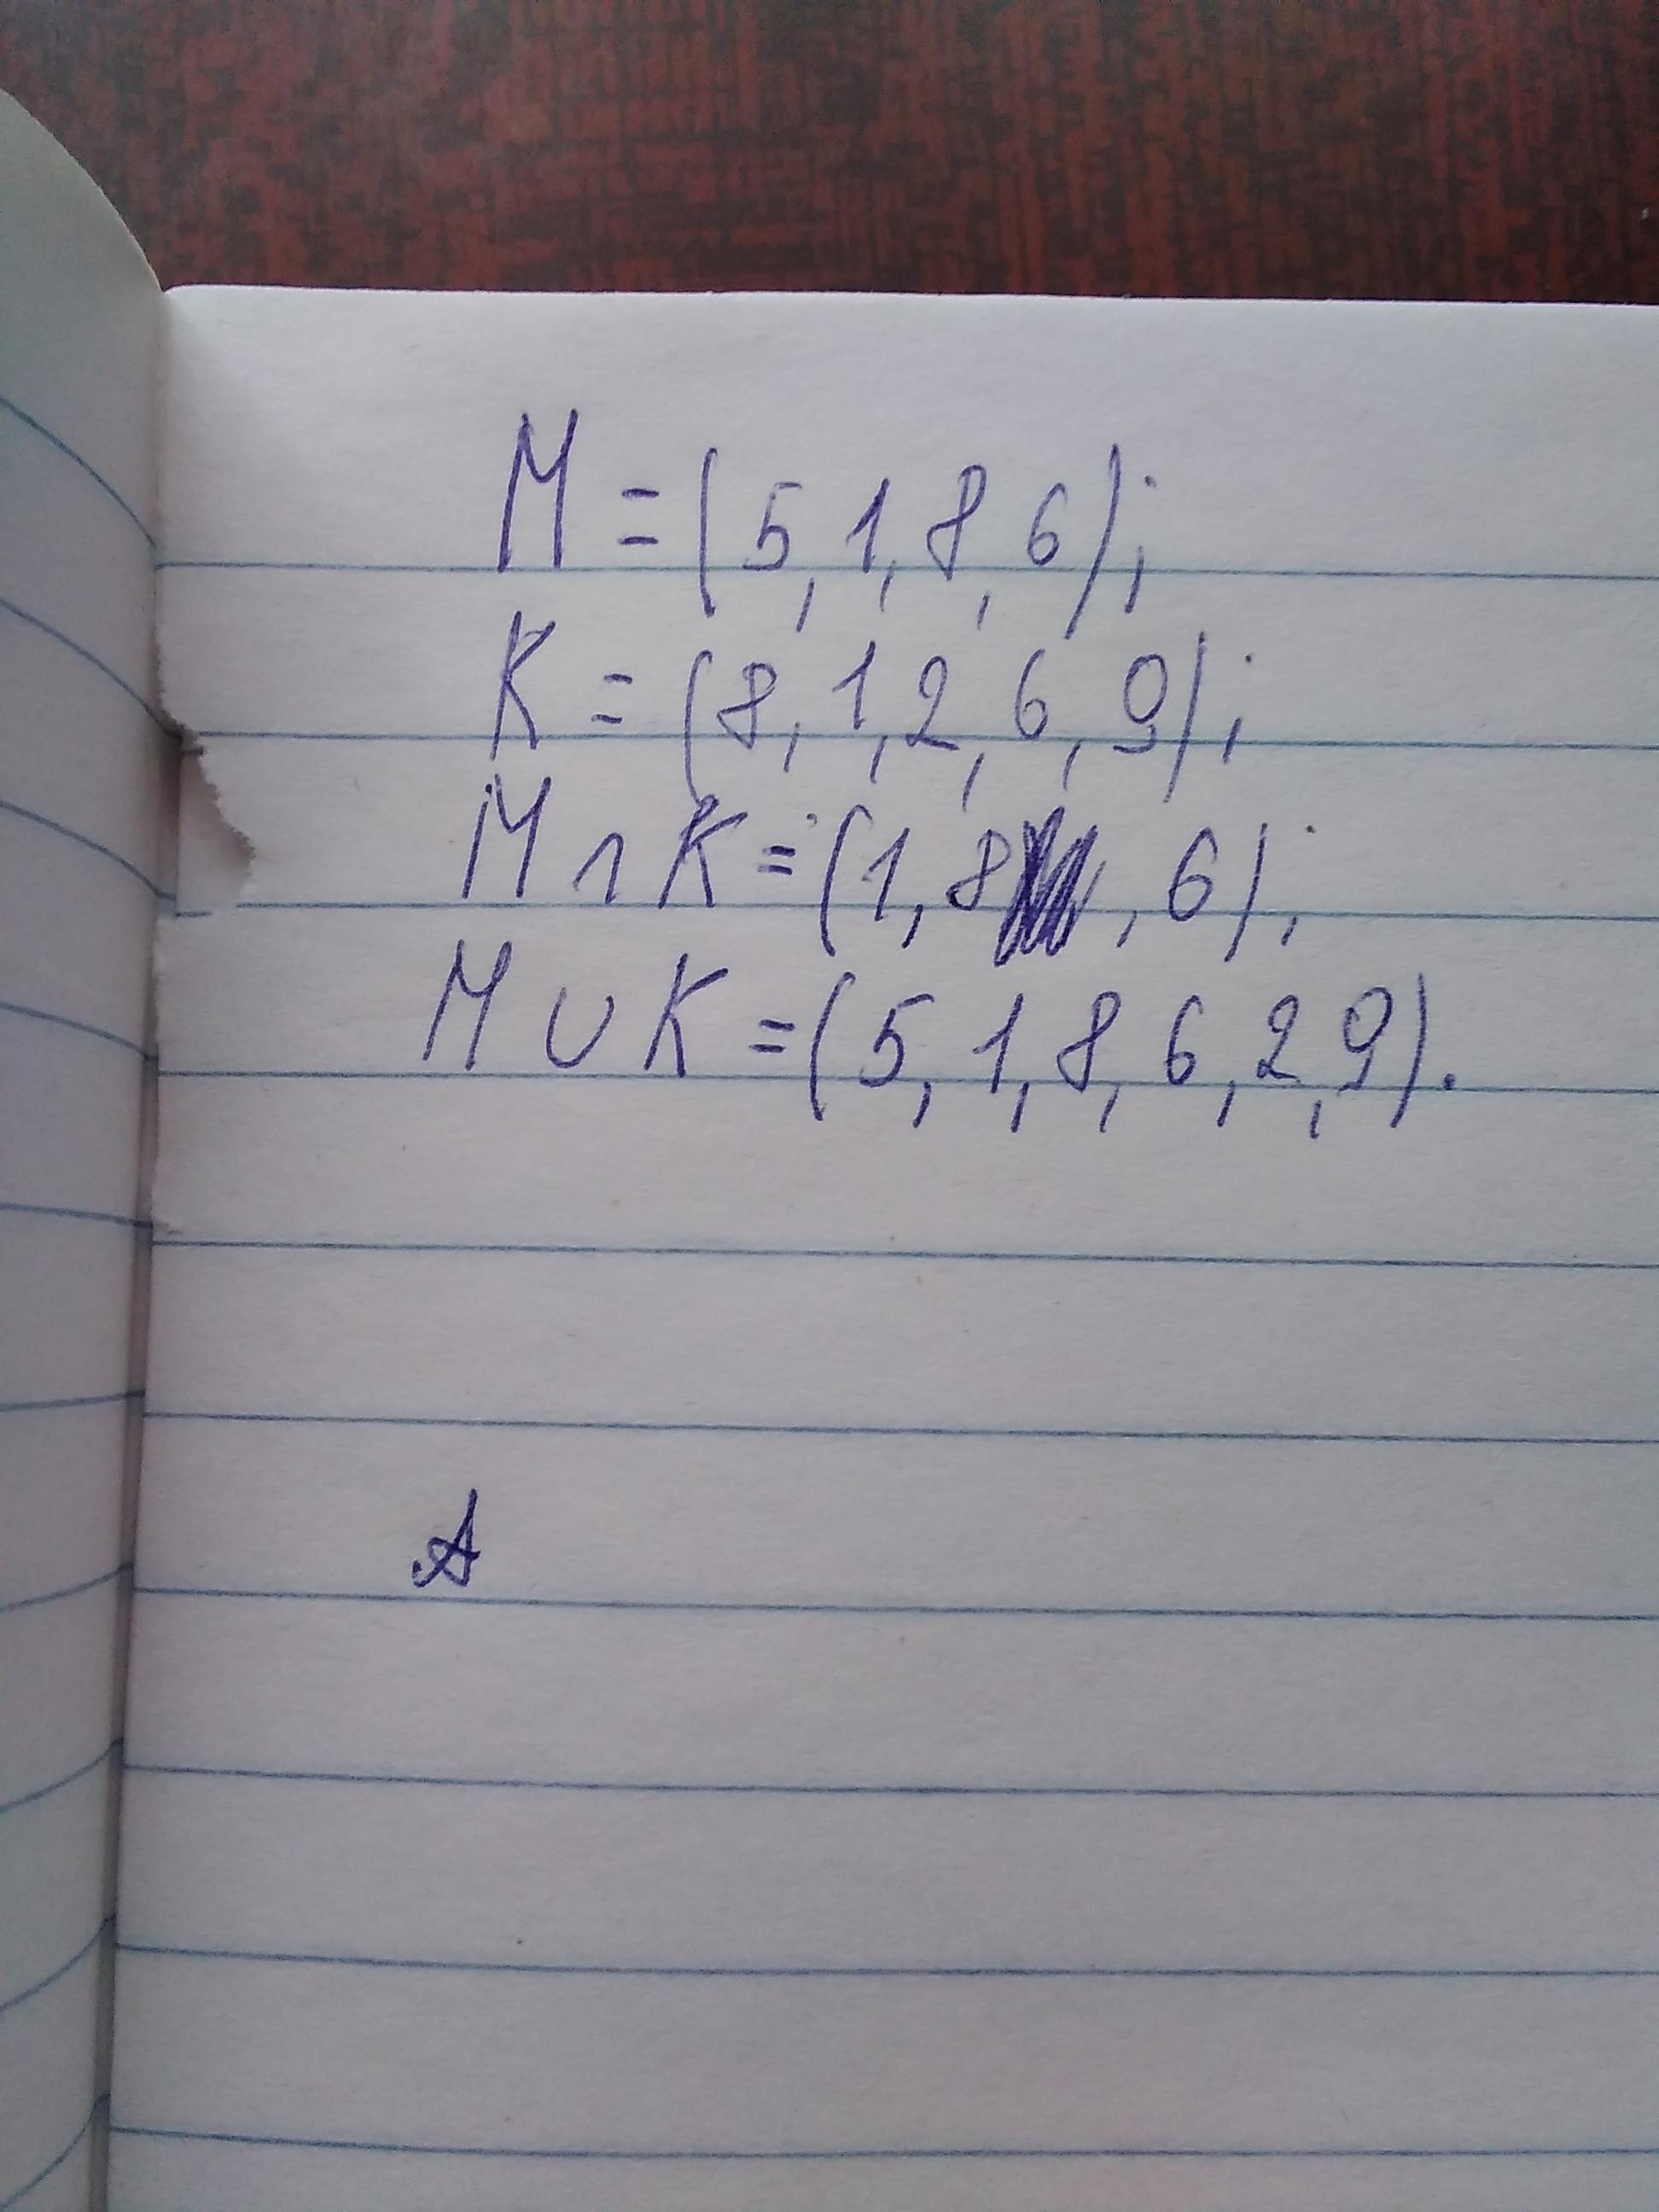 M = (5, 1, 8, 6);
K = (8, 1, 2, 6, 9);
M ∩ K = (1, 8, 6);
M ∪ K = (5, 1, 8, 6, 2, 9).
A